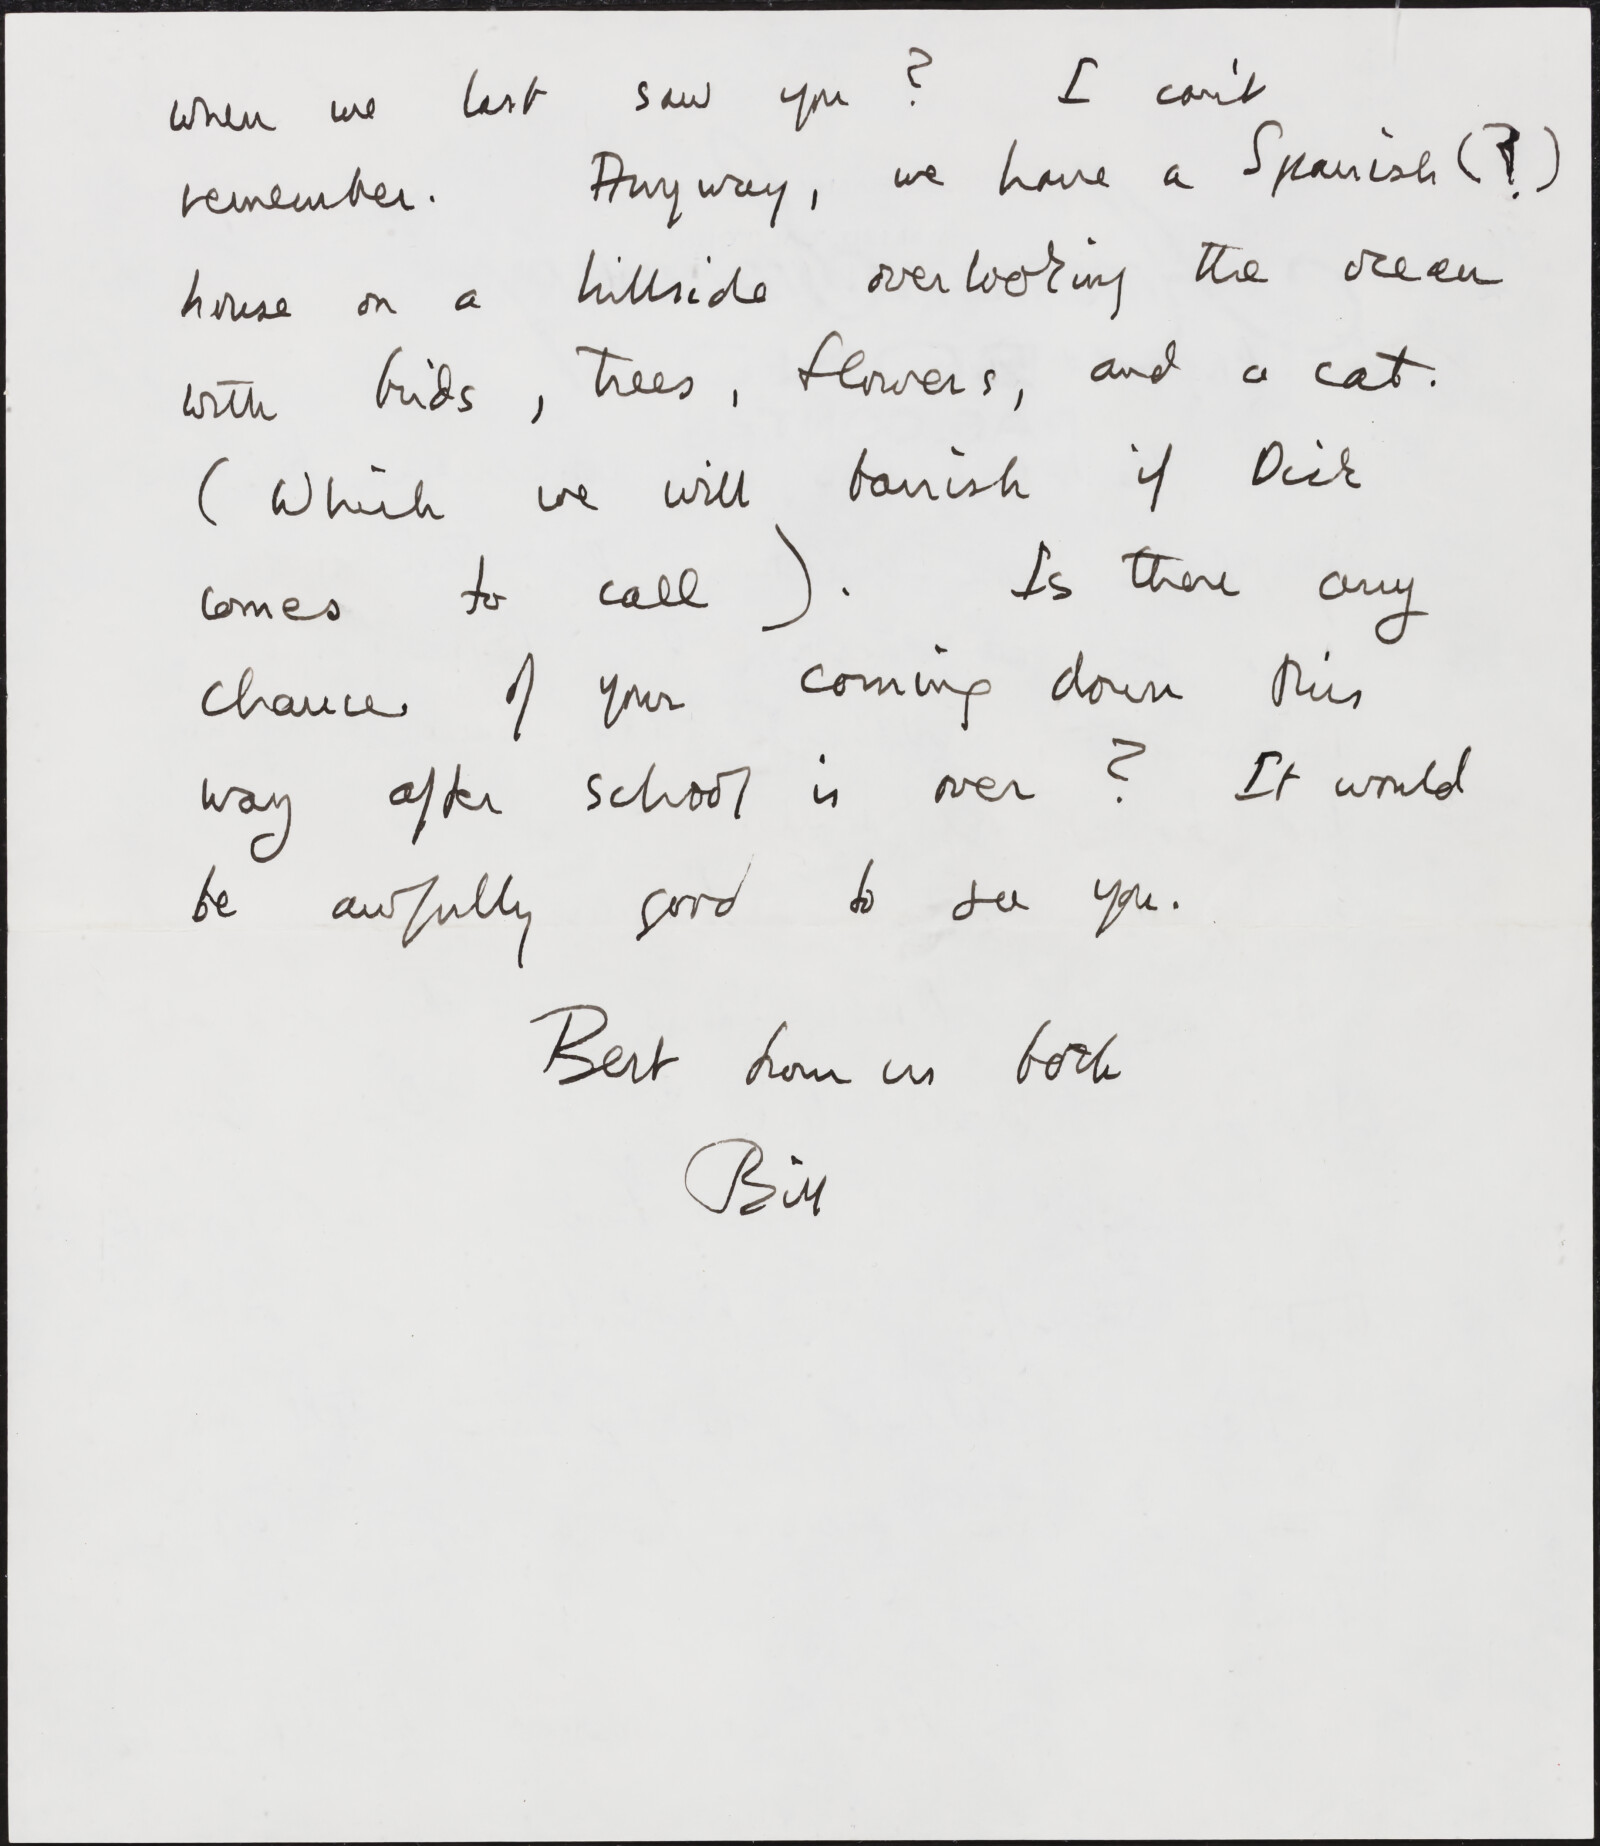 when we last saw you? I can't
remember. Anyway, we have a Spanish (?)
house on a hillside overlooking the ocean
with birds, trees, flowers, and a cat.
(Which we will banish if Dick
comes to call). Is there any
chance of your coming down this
way after school is over? It would
be awfully good to see you.
Best from us both
Bill